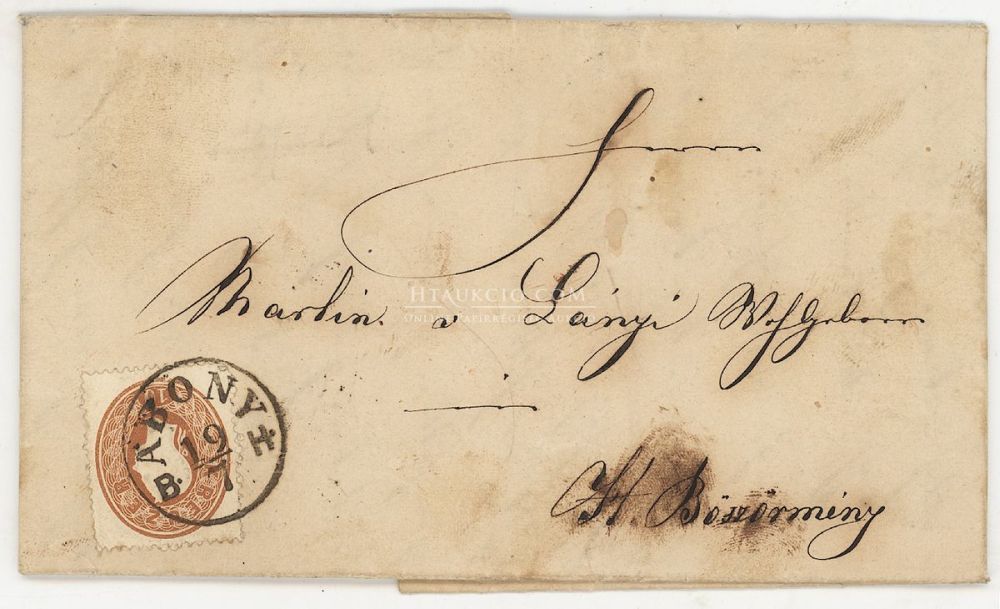 Herrn
Martin v Lányi Wohlgeborn
HTAUKCIO.COM
ONLINE PAPÍRRÉGISÉG AUKCIÓ
ABONY
12
7
B.
Böszörmény